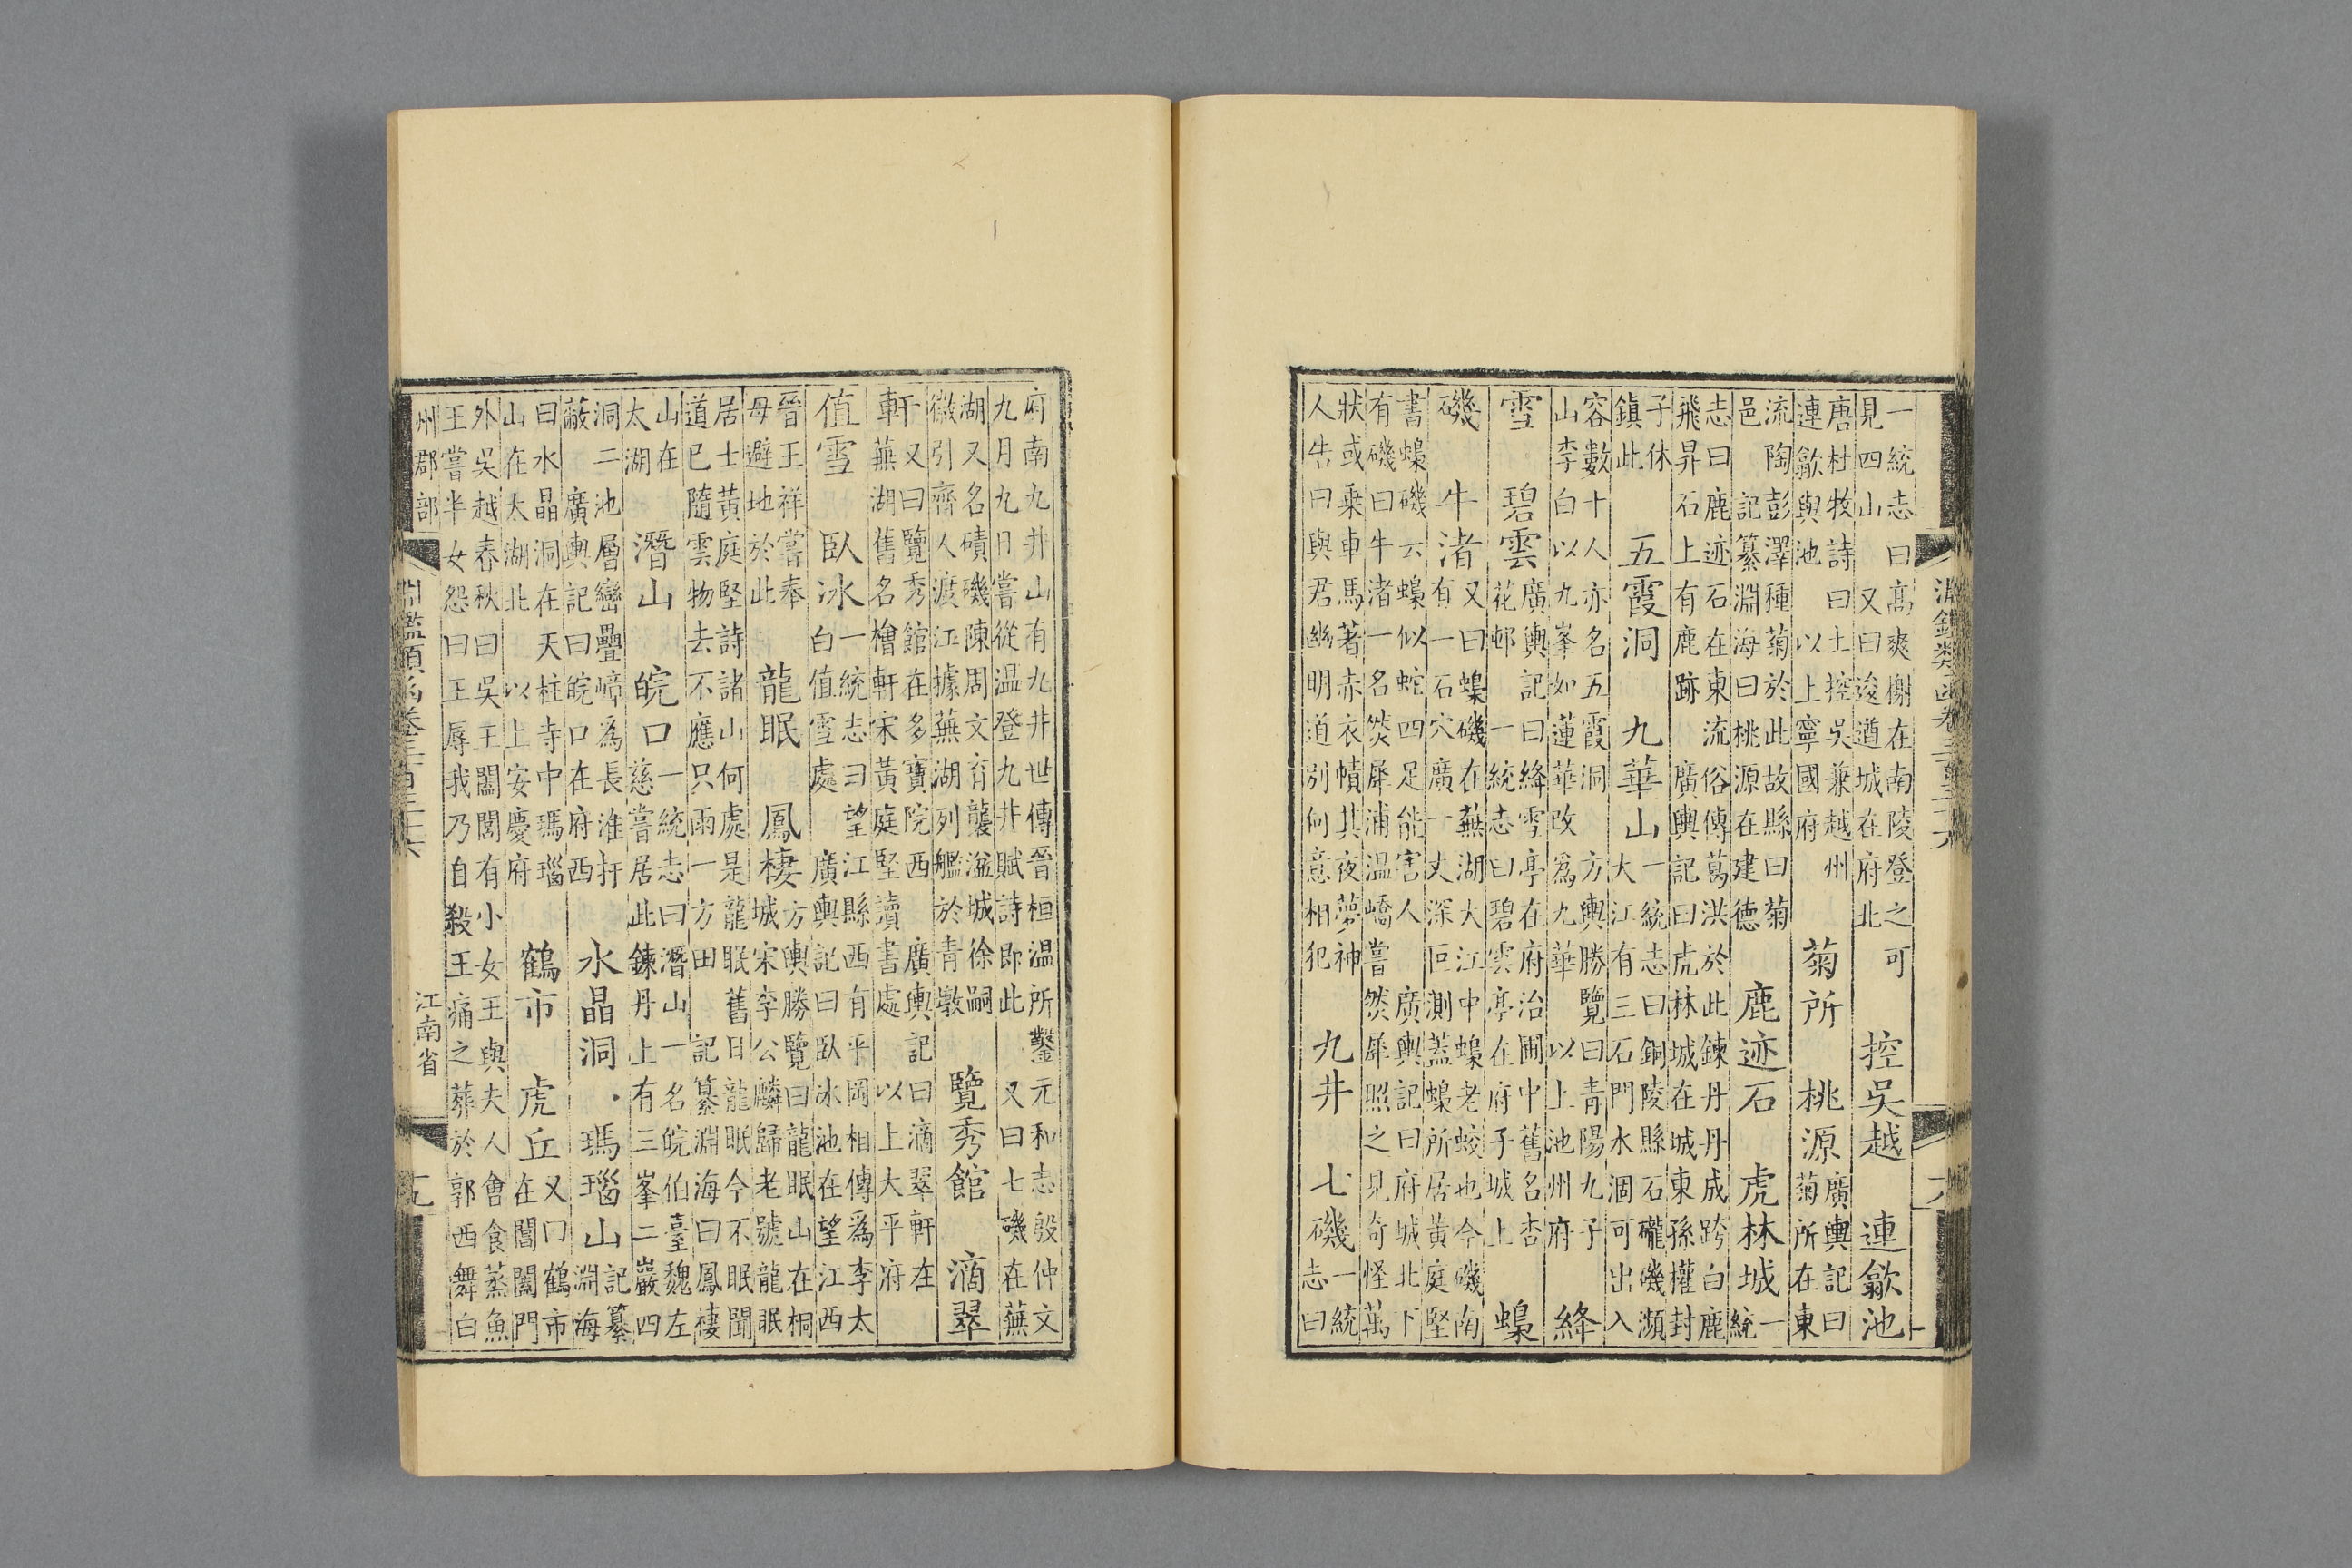 淵鑑類函卷三百三十六
一統志曰高爽榭在南陵登之可
見四山　又曰逡遒城在府北
控吳越　連歙池
唐杜牧詩曰土控吳兼越州
連歙與池　以上寧國府
菊所　桃源
廣輿記曰
菊所在東
流陶彭澤種菊於此故縣曰菊
邑　記纂淵海曰桃源在建德
鹿迹石　虎林城
一
統
志曰鹿迹石在東流俗傳葛洪於此鍊丹丹成跨白鹿
飛昇石上有鹿跡　廣輿記曰虎林城在城東孫權封
子休
鎮此
五霞洞　九華山
一統志曰銅陵縣石礲磯瀕
大江有三石門水涸可出入
容數十人亦名五霞洞　方輿勝覽曰青陽九子
山李白以九峯如蓮華改爲九華　以上池州府
絳
雪　碧雲
廣輿記曰絳雪亭在府治圃中舊名杏
花邨　一統志曰碧雲亭在府子城上
蟂
磯　牛渚
又曰蟂磯在蕪湖大江中蟂老蛟也今磯南
有一石穴廣一丈深叵測蓋蟂所居黃庭堅
書蟂磯云蟂似蛇四足能害人　廣輿記曰府城北下
有磯曰牛渚一名燃犀浦溫嶠嘗燃犀照之見奇怪萬
狀或乘車馬著赤衣幘其夜夢神
人告曰與君幽明道別何意相犯
九井　七磯
一統
志曰
府南九井山有九井世傳晉桓温所鑿元和志殷仲文
九月九日嘗從温登九井賦詩即此　又曰七磯在蕪
湖又名磧磯陳周文育襲湓城徐嗣
徽引齊人渡江據蕪湖列艦於青墩
覽秀館　滴翠
軒
又曰覽秀館在多寶院西　廣輿記曰滴翠軒在
蕪湖舊名檜軒宋黃庭堅讀書處　以上太平府
值雪　臥冰
一統志曰望江縣西有平岡相傳爲李太
白值雪處　廣輿記曰臥冰池在望江西
晉王祥嘗奉
母避地於此
龍眠　鳳棲
方輿勝覽曰龍眠山在桐
城宋李公麟歸老號龍眠
居士黃庭堅詩諸山何處是龍眠舊日龍眠今不眠聞
道已隨雲物去不應只雨一方田　記纂淵海曰鳳棲
山在
太湖
潛山　皖口
一統志曰潛山一名皖伯臺魏左
慈嘗居此鍊丹上有三峯二巖四
洞二池層巒疊嶂爲長淮扞
蔽　廣輿記曰皖口在府西
水晶洞　瑪瑙山
記纂
淵海
曰水晶洞在天柱寺中瑪瑙
山在太湖北　以上安慶府
鶴市　虎丘
又曰鶴市
在閶闔門
外吳越春秋曰吳王闔閭有小女王與夫人會食蒸魚
王嘗半女怨曰王辱我乃自殺王痛之葬於郭西舞白
州郡部　淵鑑類函卷三百三十六　江南省